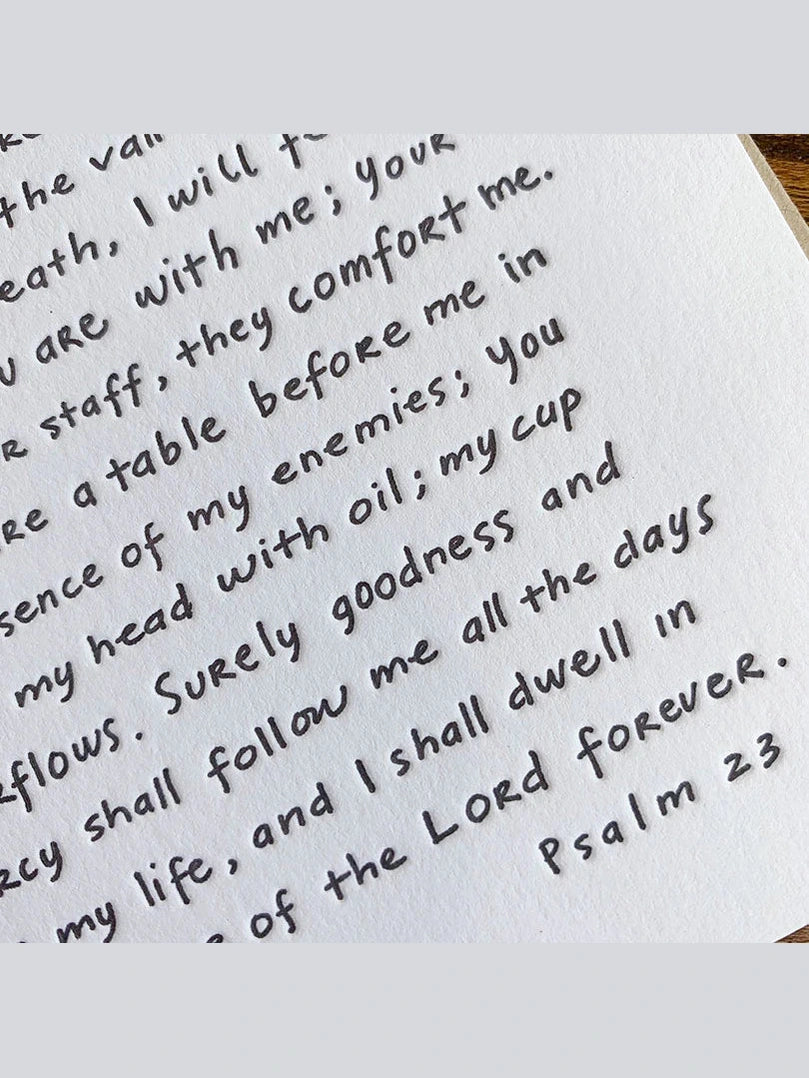 the
eath, I will
are with me; your
staff, they comfort me.
re a table before me in
sence of my enemies; you
my head with oil; my cup
flows. Surely goodness and
rcy shall follow me all the days
my life, and I shall dwell in
of the Lord forever.
Psalm 23